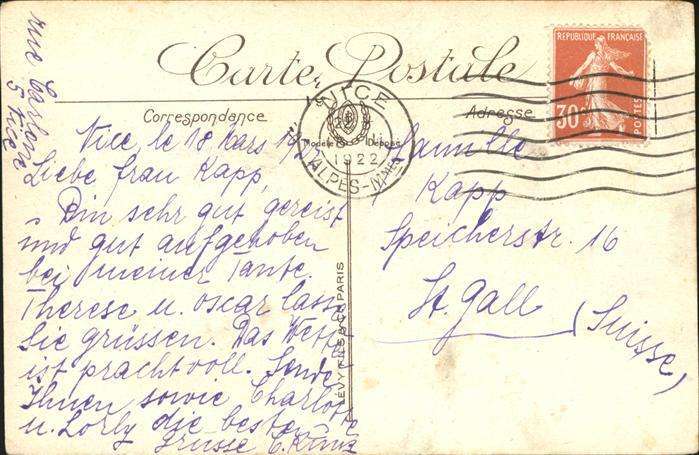 Carte Postale
Correspondance
Adresse
REPUBLIQUE FRANÇAISE
30
POSTES
NICE
1922
ALPES-MMES
Modèle Déposé
LÉVY FILS & Cie PARIS
rue
5 Nice
Nice, le 18 Mars 19
Liebe frau Kapp,
Bin sehr gut gereist
und gut aufgehoben
bei meiner Tante.
Therese u. Oscar lasse
Sie grüssen. Das Wett
ist prachtvoll. Sende
Ihnen sowie Charlotte
u. Lorly die besten
Grüsse C.
Famille
Kapp
Speicherstr. 16
St. Gall
(Suisse)